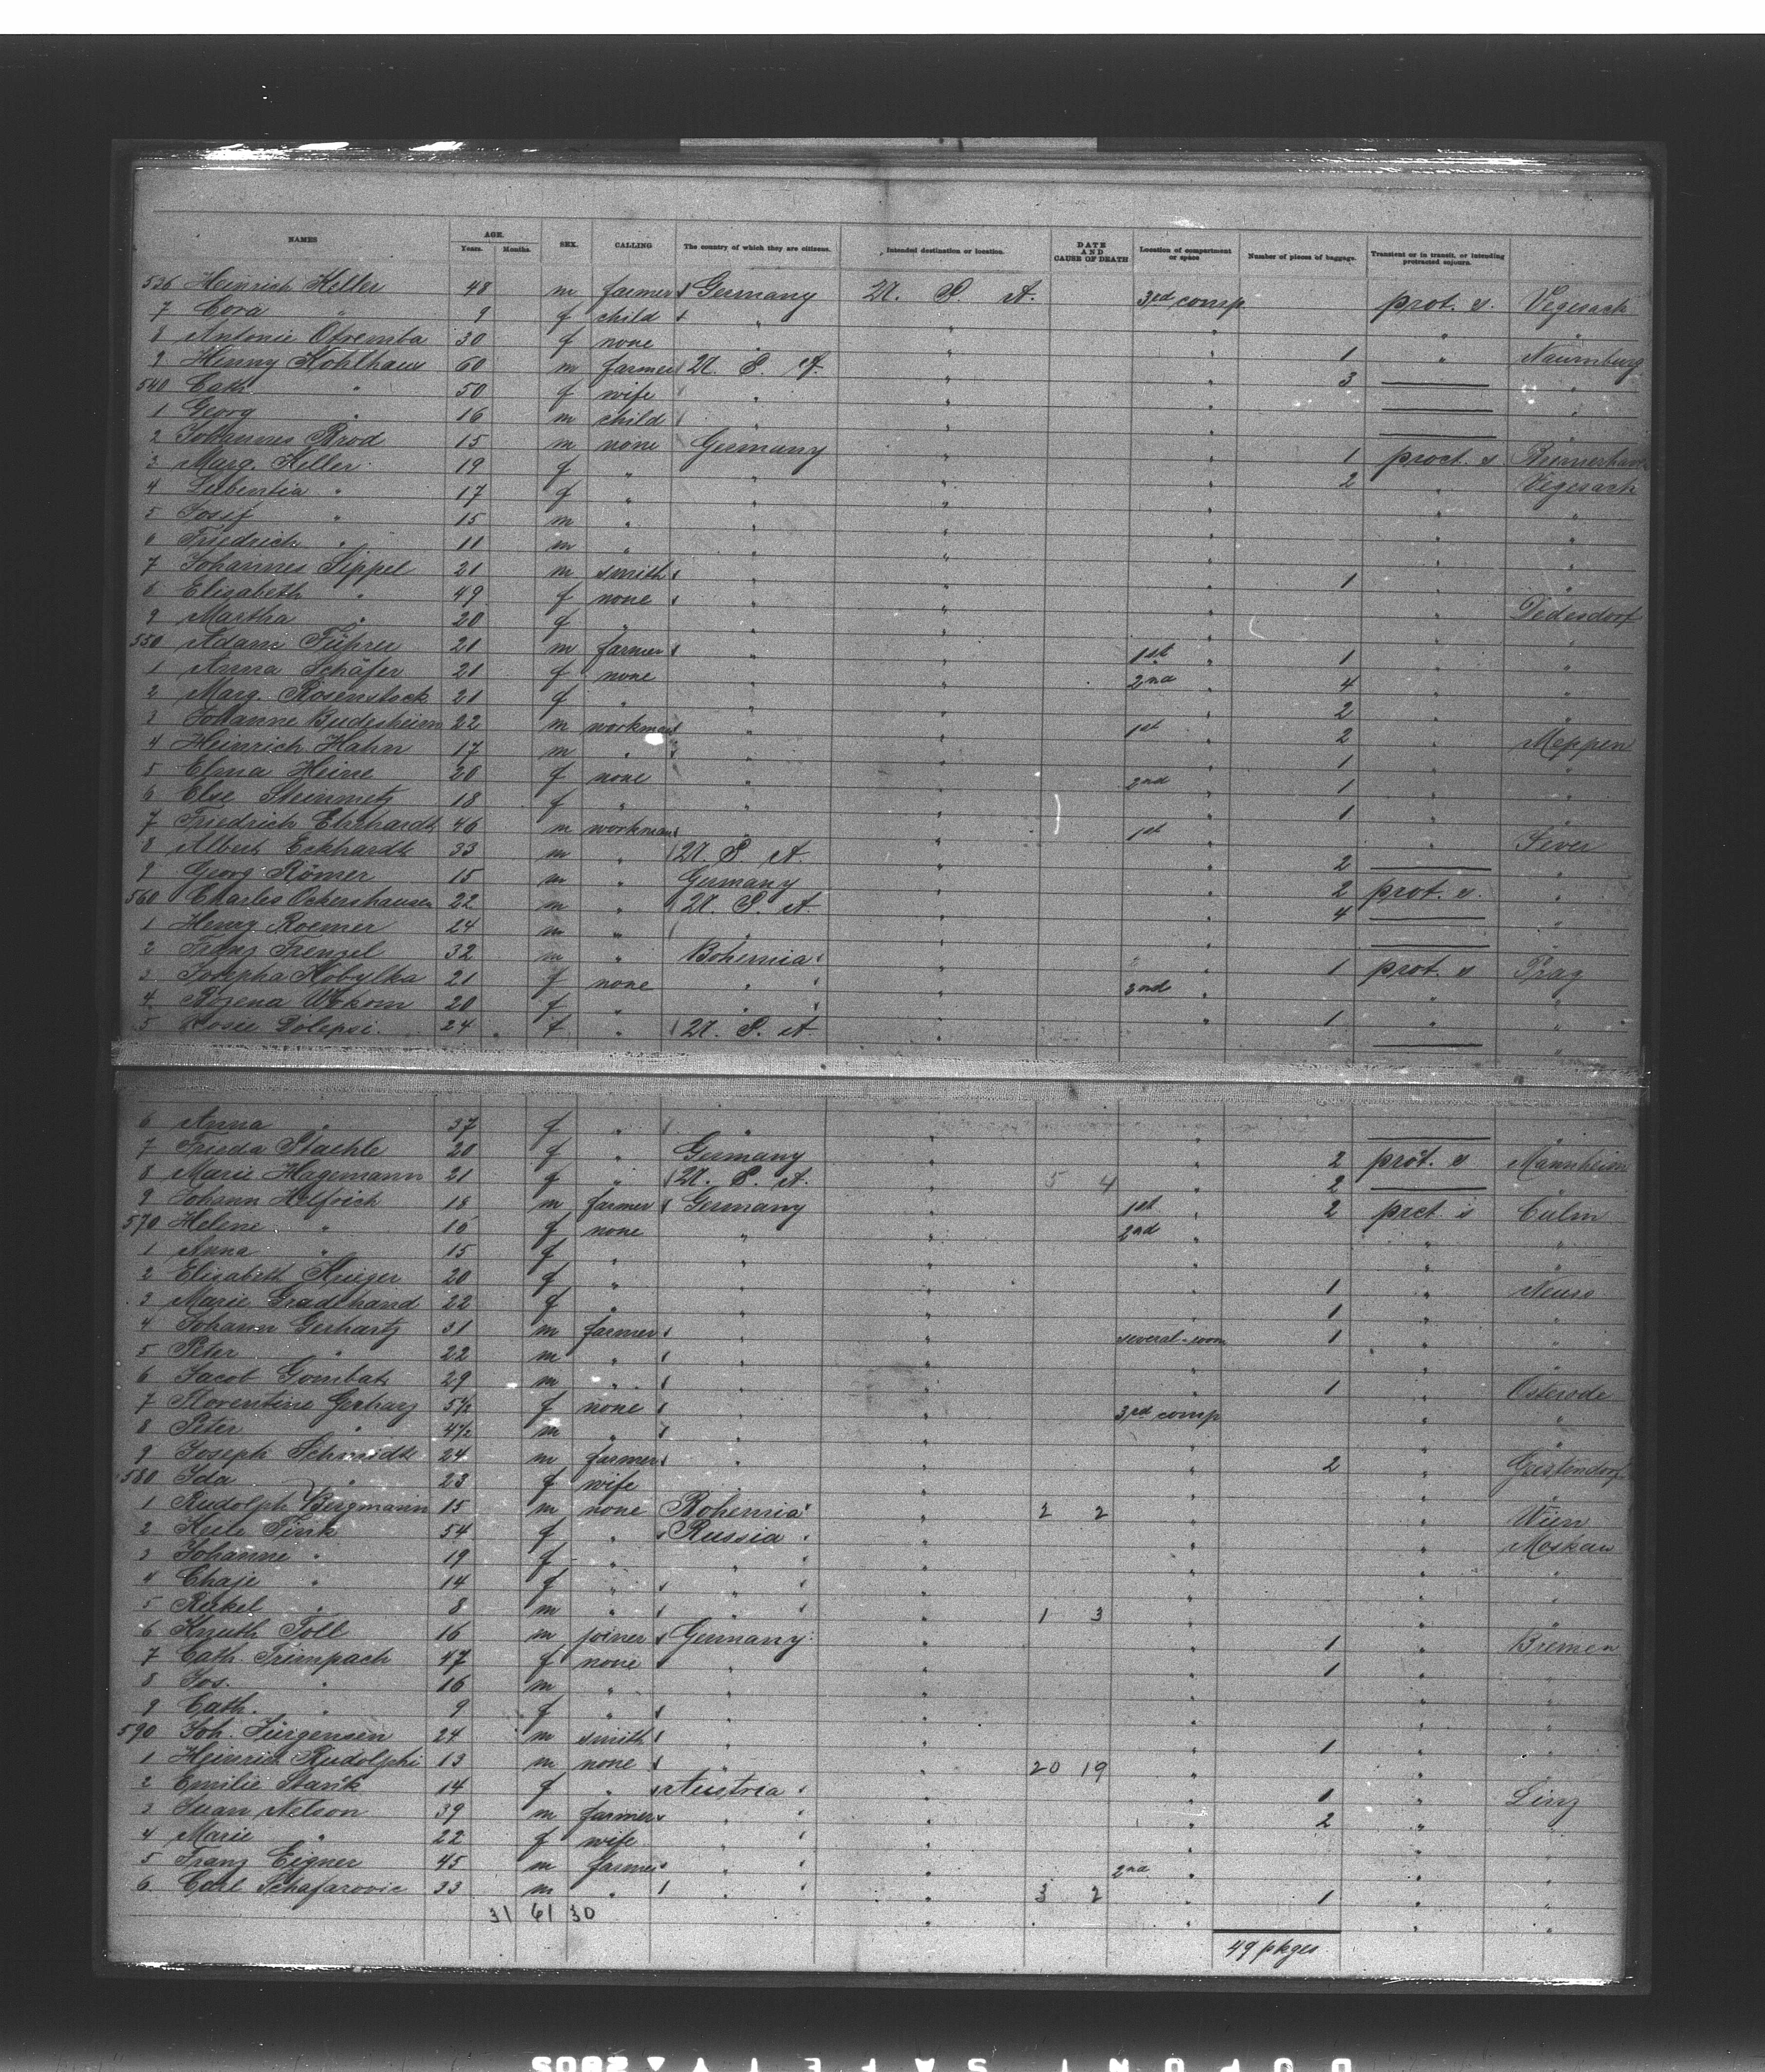 NAMES AGE. Years. Months. SEX. CALLING The country of which they are citizens. Intended destination or location. DATE AND CAUSE OF DEATH Location of compartment or space Number of pieces of baggage. Transient or in transit, or intending protracted sojourn.
536 Heinrich Keller 48 m farmer Germany U. S. A. 3rd comp. prot. s. Vegesack
7 Cora " 9 f child " " " " "
8 Antonie Otremba 30 f none " " " 1 " Naumburg
9 Henny Kohlhaus 60 m farmer U. S. A. " " 3 "
540 Cath " 50 f wife " " " "
1 Georg " 16 m child " " " "
2 Johannes Brod 15 m none Germany " " 1 proct. s Bremerhaven
3 Marg. Keller 19 f " " " " 2 " Vegesack
4 " 17 f " " " " " "
5 Josef " 15 m " " " " " "
6 Friedrich " 11 m " " " " " "
7 Johannes Sippel 21 m smith " " " 1 " "
8 Elisabeth " 49 f none " " " " Dedesdorf
9 Martha " 20 f " " " " " "
550 Adam Führer 21 m farmer " " 1st " 1 " "
1 Anna Schäfer 21 f none " " 2nd " 4 " "
2 Marg. Rosenstock 21 f " " " 2 " "
3 Johanne Budesheim 22 m workman " " 1st " 2 " Meppen
4 Heinrich Hahn 17 m " " " " 1 " "
5 Elma Heine 20 f none " " 2nd " 1 " "
6 Else Steinmetz 18 f " " " " 1 " "
7 Friedrich Ehrhardt 46 m workman " " 1st " " Jever
8 Albert Eckhardt 33 m " U. S. A. " " 2 "
9 Georg Römer 15 m " Germany " " 2 prot. s. "
560 Charles Ockershausen 22 m " U. S. A. " " 4 "
1 Henry Roemer 24 m " " " "
2 Franz Frenzel 32 m " Bohemia " " 1 prot. s Prag
3 Josepha Kobylka 21 f none " " 2nd " " "
4 Rozena Wokom 20 f " " " " 1 " "
5 Rosie Dolepsi 24 f " U. S. A. " "
6 Anna " 37 f " " " " "
7 Frieda Staehle 20 f " Germany " " 2 prot. s Mannheim
8 Marie Hagemann 21 f " U. S. A. " 5 4 " 2
9 Johann Helfrich 18 m farmer Germany " 1st " 2 prct. s Culm
570 Helene " 16 f none " " 2nd " " "
1 Anna " 15 f " " " " " "
2 Elisabeth 20 f " " " " 1 " Neuss
3 Marie Gradthand 22 f " " " " 1 " "
4 Johann Gerhartz 31 m farmer " " several-room 1 " "
5 Peter " 22 m " " " " " "
6 Jacob Gombat 29 m " " " " 1 " Osterode
7 Florentine Gerharz 5½ f none " " 3rd comp " "
8 Peter " 4½ m " " " " " "
9 Joseph Schmidt 24 m farmer " " " 2 " Geestendorf
580 Ida " 23 f wife " " " "
1 Rudolph Bergmann 15 m none Bohemia " 2 2 " " Wien
2 Heile Fink 54 f " Russia " " " Moskau
3 Johanne " 19 f " " " " " "
4 Chaje " 14 f " " " " " "
5 Rekel " 8 m " " " 1 3 " " "
6 Knuth Toll 16 m joiner Germany " " 1 " Bremen
7 Cath. Trimpach 47 f none " " " 1 " "
8 Jos. " 16 m " " " " " "
9 Cath. " 9 f " " " " " "
590 Joh. Jürgensen 24 m smith " " " 1 " "
1 Heinrich Rudolphi 13 m none " " 20 19 " " "
2 Emilie Stark 14 f " Austria " " 1 " Linz
3 Juan Nelson 39 m farmer " " " 2 " "
4 Marie " 22 f wife " " " "
5 Franz Eigner 45 m farmer " " 2nd " " "
6 Carl Schafarovic 33 m " " " 3 2 " 1 " "
31 61 30
49 pkges